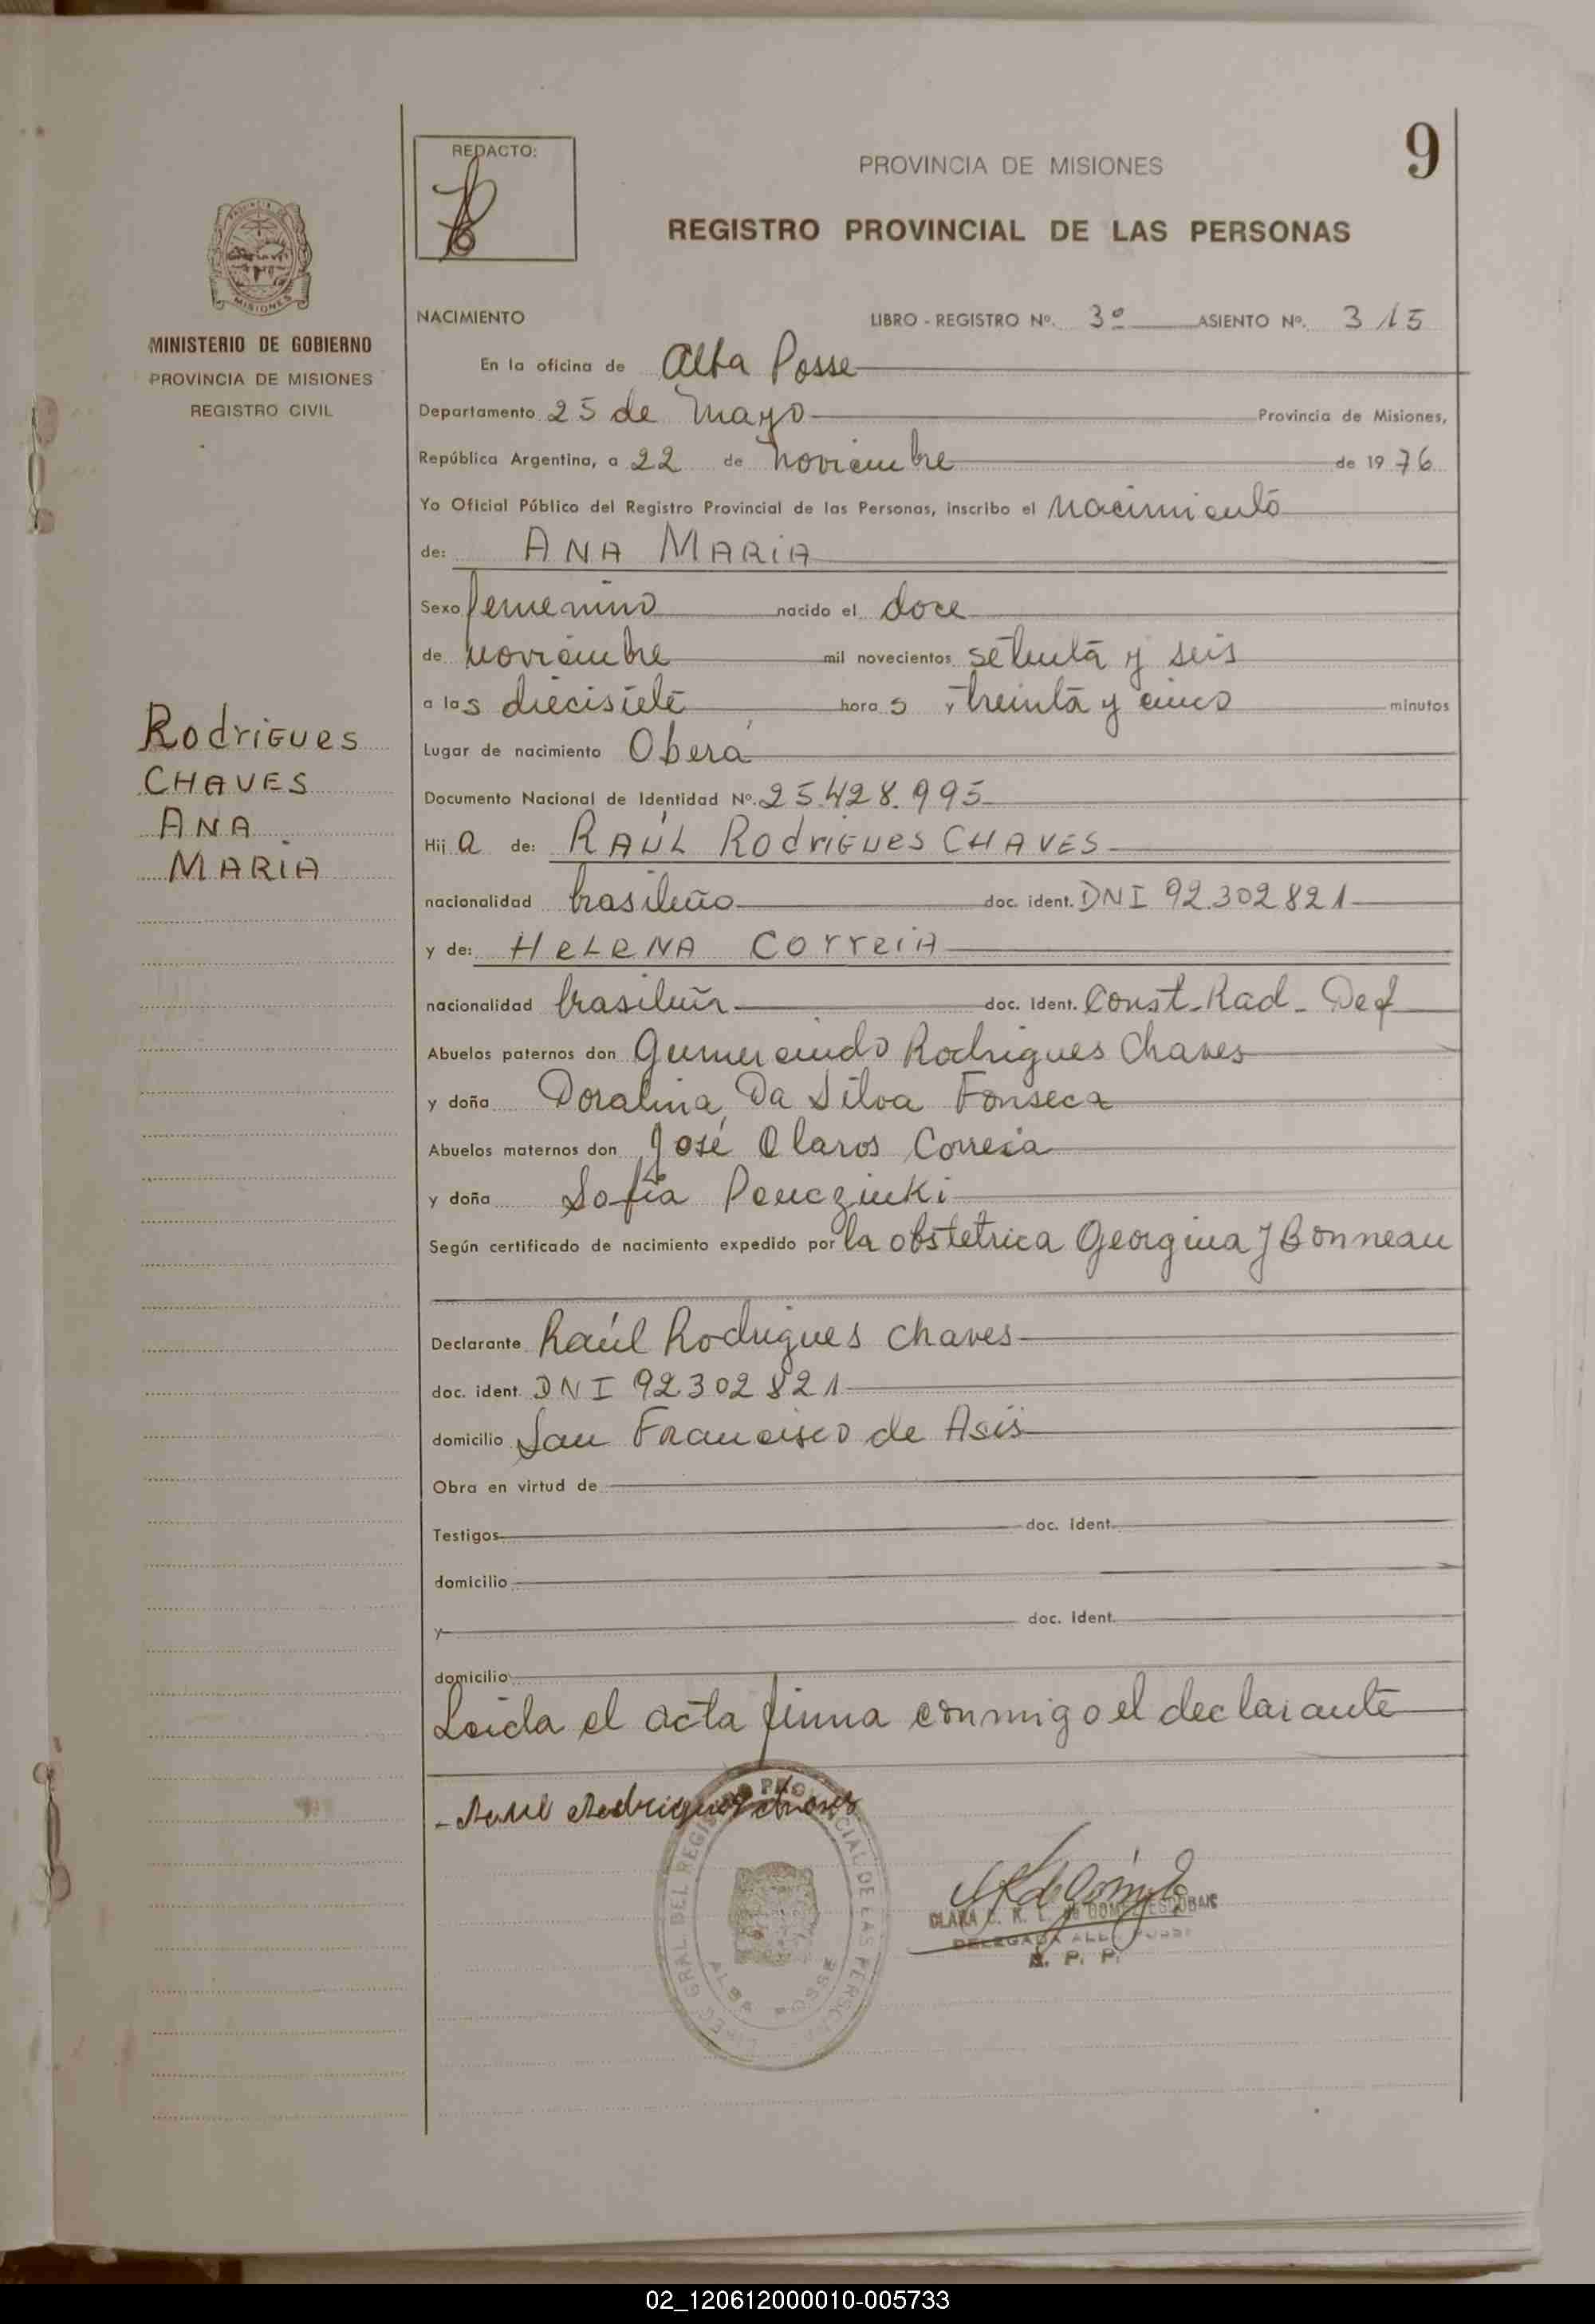 9
REDACTO:
PROVINCIA DE MISIONES
REGISTRO PROVINCIAL DE LAS PERSONAS
MISIONES
MINISTERIO DE GOBIERNO
PROVINCIA DE MISIONES
REGISTRO CIVIL
Rodrigues
CHAVES
ANA
MARIA
NACIMIENTO LIBRO - REGISTRO Nº. 3º ASIENTO Nº. 315
En la oficina de Alba Posse
Departamento 25 de Mayo Provincia de Misiones,
República Argentina, a 22 de noviembre de 1976
Yo Oficial Público del Registro Provincial de las Personas, inscribo el nacimiento
de: ANA MARIA
Sexo femenino nacido el doce
de noviembre mil novecientos setenta y seis
a las diecisiete horas y treinta y cinco minutos
Lugar de nacimiento Oberá
Documento Nacional de Identidad Nº. 25.428.995
Hija de: RAÚL Rodrigues CHAVES
nacionalidad brasileño doc. ident. DNI 92.302821
y de: HELENA Correia
nacionalidad brasileña doc. ident. Const. Rad. Def
Abuelos paternos don Gumercindo Rodrigues Chaves
y doña Doralina Da Silva Fonseca
Abuelos maternos don José Olaros Correia
y doña Sofía
Según certificado de nacimiento expedido por la obstetrica Georgina J Bonneau
Declarante Raúl Rodrigues Chaves
doc. ident. DNI 92302821
domicilio San Francisco de Asís
Obra en virtud de
Testigos doc. ident.
domicilio
y doc. ident.
domicilio
Leida el acta firma conmigo el declarante
Raul Rodrigues chaves
GRAL. DEL REGISTRO PROVINCIAL DE LAS PERSONAS
ALBA POSSE
CLARA C. R. L. de GOMEZ ESCOBAR
DELEGADA ALBA POSSE
R. P. P.
02_120612000010-005733